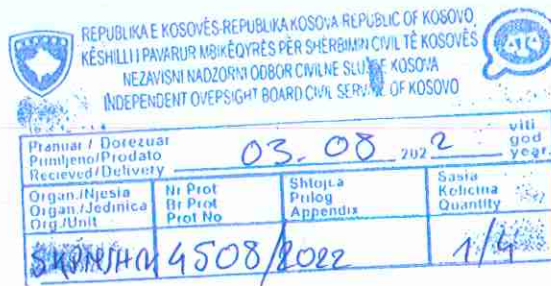 REPUBLIKA E KOSOVËS-REPUBLIKA KOSOVA-REPUBLIC OF KOSOVO
KËSHILLI I PAVARUR MBIKËQYRËS PËR SHËRBIMIN CIVIL TË KOSOVËS
NEZAVISNI NADZORNI ODBOR CIVILNE SLUŽBE KOSOVA
INDEPENDENT OVEPSIGHT BOARD CIVIL SERVICE OF KOSOVO
Pranuar / Dorezuar
Primljeno/Prodato
Recieved/Delivery
03. 08 2022
viti
god
year.
Organ./Njesia
Organ./Jedinica
Org./Unit
Nr Prot
Br Prot
Prot No
Shtojca
Prilog
Appendix
Sasia
Kolicina
Quantity
4508/2022
1/4